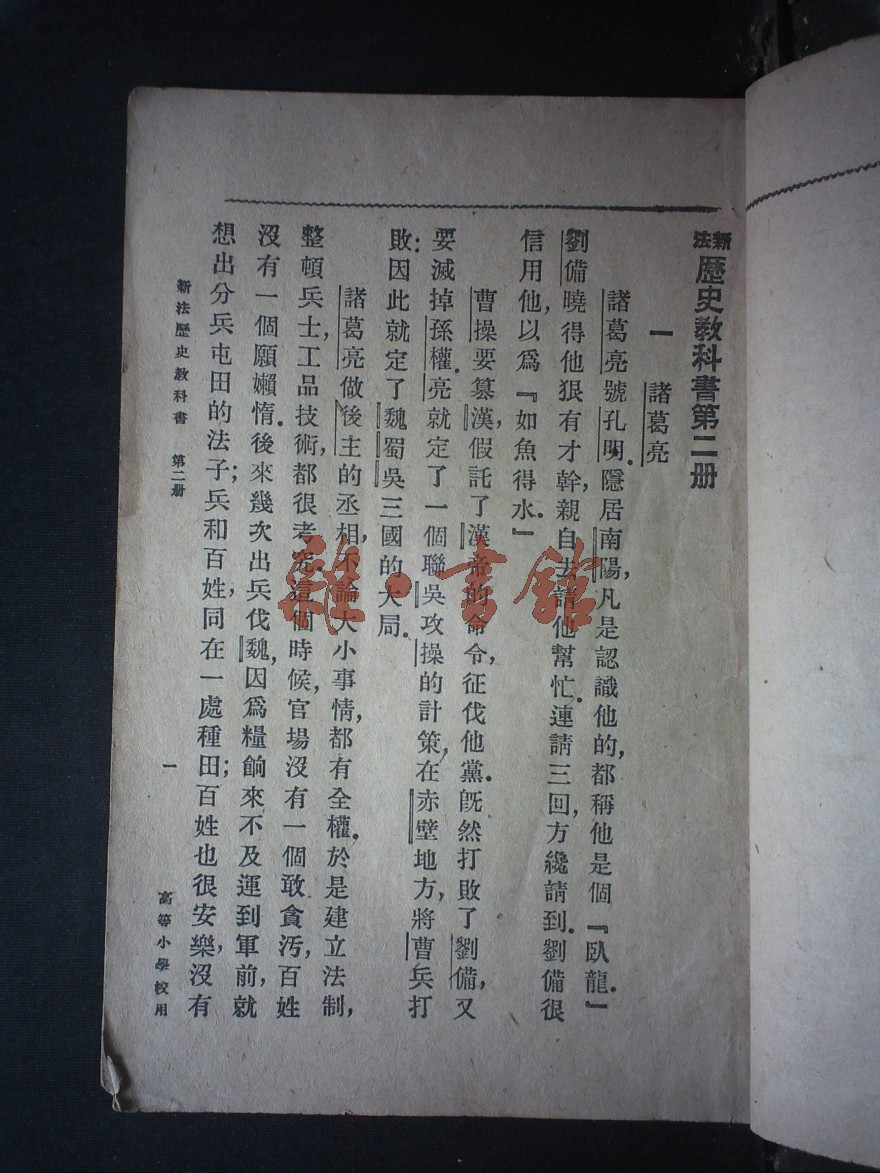 新法歷史教科書第二册
一 諸葛亮
諸葛亮號孔明.隱居南陽,凡是認識他的,都稱他是個『臥龍.』
劉備曉得他狠有才幹,親自去請他幫忙.連請三回,方纔請到.劉備很
信用他,以爲『如魚得水.』
曹操要篡漢,假託了漢帝的命令,征伐他黨.旣然打敗了劉備,又
要滅掉孫權.亮就定了一個聯吳攻操的計策,在赤壁地方,將曹兵打
敗:因此就定了魏蜀吳三國的大局.
諸葛亮做後主的丞相,不論大小事情,都有全權.於是建立法制,
整頓兵士,工品技術,都很考究.這個時候,官場沒有一個敢貪汚,百姓
沒有一個願嬾惰.後來幾次出兵伐魏,因爲糧餉來不及運到軍前,就
想出分兵屯田的法子;兵和百姓,同在一處種田;百姓也很安樂,沒有
新法歷史教科書 第二册 一 高等小學校用
雜·書館